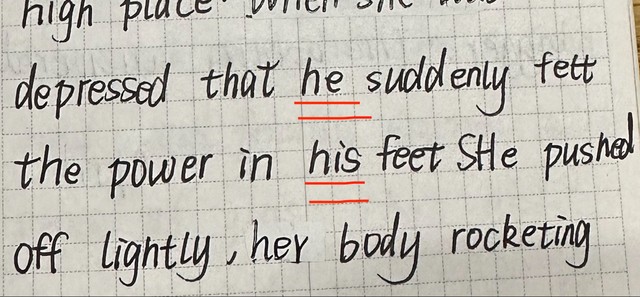 high place. When she was
depressed that he suddenly fett
the power in his feet SHe pushed
off lightly, her body rocketing